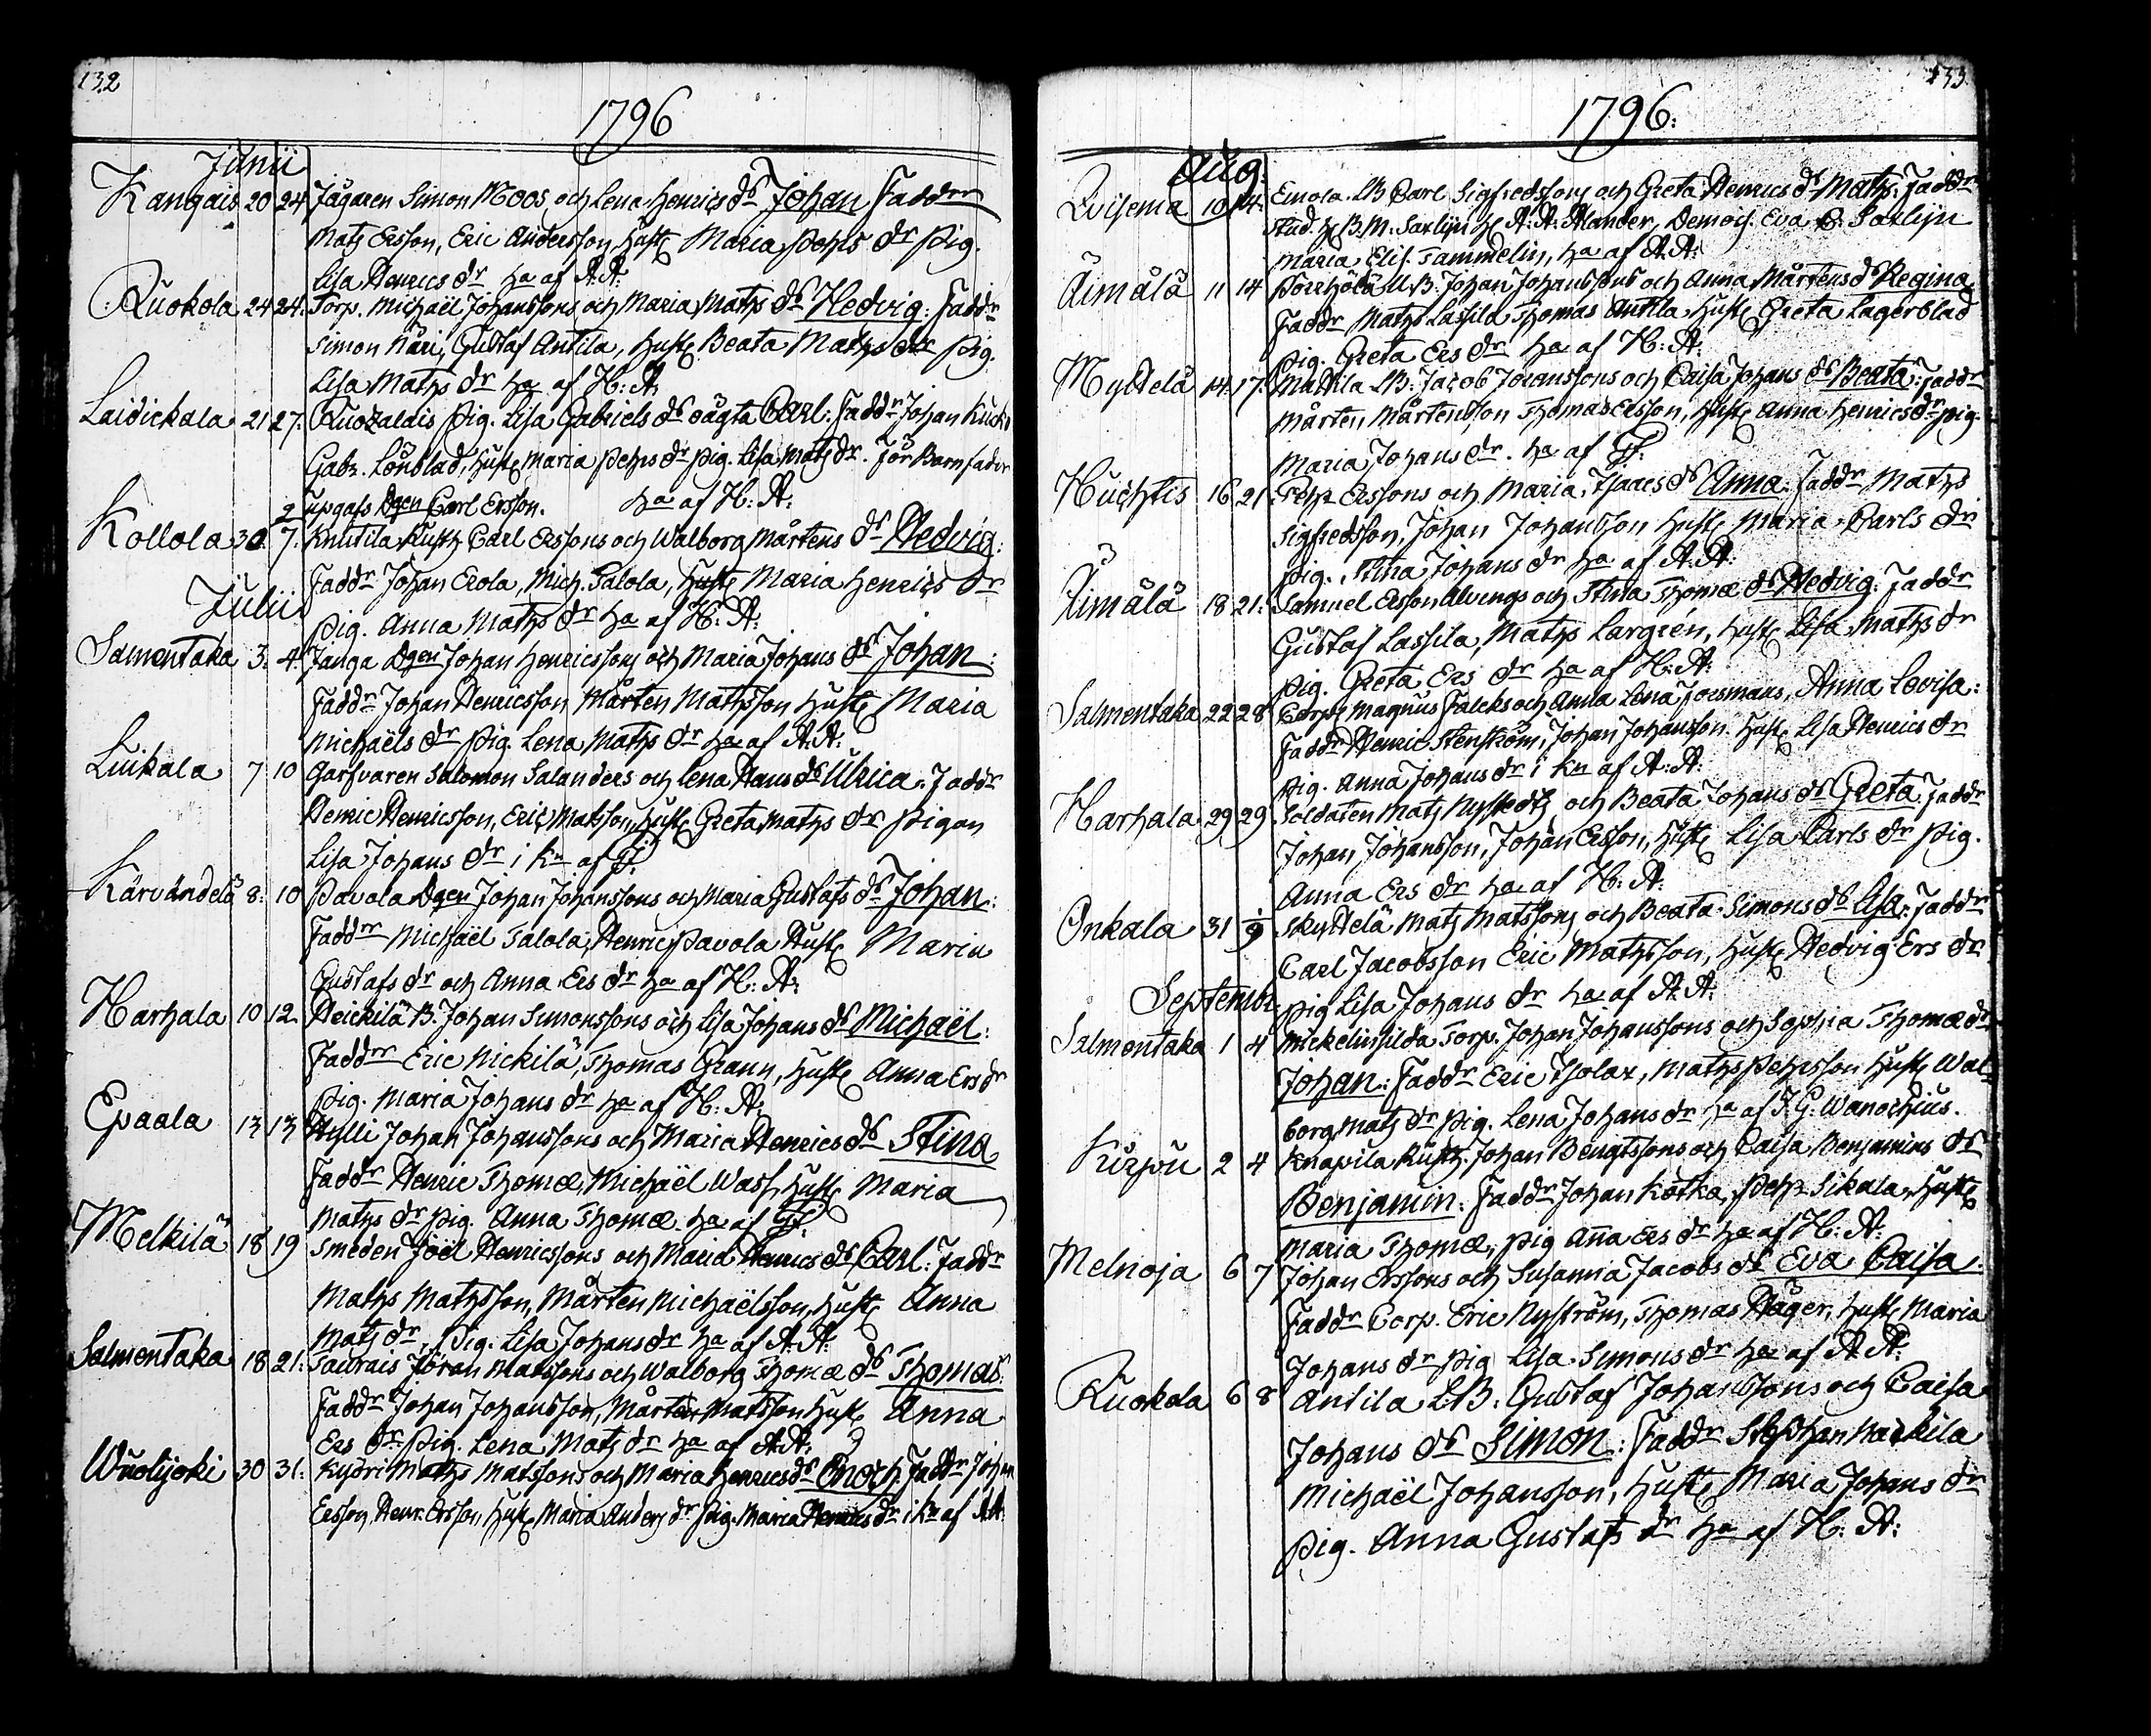 132
1796
Junii
Kangais 20 24 Jägaren Simon Moos och Lena Henrics drs Johan Faddrr
Mats Ersson, Eric Andersson Hust Maria Pehrs dr Pig.
Lisa Henrics dr ha af A: A:
Kuokola 24 24. Torp. Michaël Johanssons och Maria Maths drs Hedvig: Faddr
Simon Näri, Gustaf Antila, Hust Beata Maths dr Pig.
Lisa Maths dr ha af H: A:
Laidickala 21 27. Pig. Lisa Gabriels drs oägta Carl: Faddr Johan
Gabr. Lönblad, Hust Maria Pehrs dr Pig. Lisa Mats dr. För Barnfader
upgafs Dgen Carl Ersson. ha af H: A:
Kollola 30 2/7. Knutila Carl Erssons och Walborg Mårtens drs Hedvig:
Faddr Johan Erola, Mich. Salola, Hust Maria Henrics dr
Julii
Pig. Anna Maths dr ha af H: A:
Samentaka 3. 4. Janga Dgen Johan Henricssons och Maria Johans drs Johan:
Faddr Johan Henricsson Mårten Mathsson Hust Maria
Michaëls dr Pig. Lena Maths dr ha af A: A:
Luikala 7 10 Garfvaren Salomon Salanders och Lena Hans drs Ulrica. Faddr
Henric Henricsson, Eric Matsson, Hust Greta Maths dr Pigan
Lisa Johans dr i Kn af
Kärvändelä 8: 10 Pavola Dgen Johan Johanssons och Maria Gustafs drs Johan:
Faddrr Michaël Talola, Henric Pavola Hust Maria
Gustafs dr och Anna Ers dr ha af H: A:
Harhala 10 12. Heickilä B. Johan Simonssons och Lisa Johans drs Michaël:
Faddrr Eric Nickilä, Thomas Grann, Hust Anna Ers dr
Pig. Maria Johans dr ha af H: A:
Epaala 13 13 Hylli Johan Johanssons och Maria Henrics drs Stina
Faddr Henric Thomæ, Michaël Wass, Hust Maria
Maths dr Pig. Anna Thomæ ha af
Melkilä 18 19 Smeden Joël Henricssons och Maria Henrics drs Carl: Faddr
Maths Mathsson, Mårten Michaëlsson, Hust Anna
Mats dr, Pig. Lisa Johans dr ha af A: A:
Salmentaka 18 21: Taurais Jöran Matssons och Walborg Thomæ drs Thomas.
Faddr Johan Johansson, Mårten Matsson Hust Anna
Ers dr Pig. Lena Mats dr ha af A: A:
Wuolijoki 30 31: Kyöri Maths Matssons och Maria Henrics drs Enoch Faddr Johan
Ersson, Henr. Ersson, Hust Maria Anders dr Pig. Maria Henrics dr i Kn af A: A:
133.
1796:
Aug:
10 14: Emola LB Carl Sigfredssons och Greta Henrics drs Maths: Faddr
Stud. H B. M. Saxlijn H A: A: Alander, Demois. Eva C: Saxlijn
Maria Elis. Tammelin, ha af A: A:
Äimälä 11 14 Pörrhölä UB: Johan Johanssons och Anna Mårtens drs Regina
Faddr Maths Lassila Thomas Antila Hust Greta Lagerblad
Pig. Greta Ers dr ha af H: A:
Myttelä 14. 17. Mattila LB: Jacob Johanssons och Caisa Johans drs Beata: Faddr
Mårten Mårtensson Thomas Ersson, Hust Anna Henrics dr Pig.
Maria Johans dr. ha af
Huchtis 16 21: Pehr Erssons och Maria Isaacs drs Anna. Faddr Maths
Sigfredsson, Johan Johansson Hust Maria Carls dr
Pig. Stina Johans dr ha af A: A:
Äimälä 18 21: Samuel Ersson Alvengs och Stina Thomæ drs Hedvig: Faddr
Gustaf Lassila, Maths Largren, Hust Lisa Maths dr
Pig. Greta Ers dr ha af H: A:
Salmentaka 22 28 Corps Magnus Falcks och Anna Lena Forsmans, Anna Lovisa:
Faddr Henric Stenström, Johan Johansson. Hust Lisa Henrics dr
Pig. Anna Johans dr i Kn af A: A:
Harhala 29 29 Soldaten Mats Nystedts och Beata Johans drs Greta. Faddr
Johan Johansson, Johan Ersson, Hust Lisa Carls dr Pig.
Anna Ers dr ha af H: A:
Onkala 31 1/9 Skyttelä Mats Matssons och Beata Simons drs Lisa: Faddr
Carl Jacobsson Eric Mathsson, Hust Hedvig Ers dr
Septembr.
Pig Lisa Johans dr ha af A: A:
Salmentaka 1 4 Mickelinsilda Torp. Johan Johanssons och Sophia Thomæ drs
Johan: Faddr Eric Isolax, Maths Pehrsson Hust Wal
borg Mats dr Pig. Lena Johans dr ha af J: G: Wanochius.
Kurpu 2 4 Knapila Johan Bengtssons och Caisa Benjamins drs
Benjamin: Faddr Johan Kotka, Pehr Sikala, Hust
Maria Thomæ, Pig Anna Ers dr ha af H: A:
Melnoja 6 7 Johan Erssons och Susanna Jacobs drs Eva Caisa:
Faddr Corp. Eric Nyström, Thomas Häger, Hust Maria
Johans dr Pig Lisa Simons dr ha af A: A:
Kuokola 6 8 Antila LB: Gustaf Johanssons och Caisa
Johans drs Simon: Faddr Stephan Nackila
Michaël Johansson, Hust Maria Johans dr
Pig. Anna Gustafs dr ha af H: A: